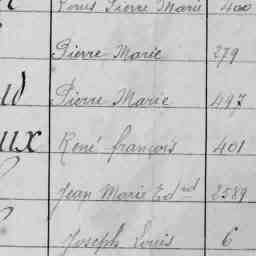 Pierre Marie 400
Pierre Marie 379
Pierre Marie 497
ux René françois 401
Jean Marie Edᵈ 2589
Joseph Louis 6